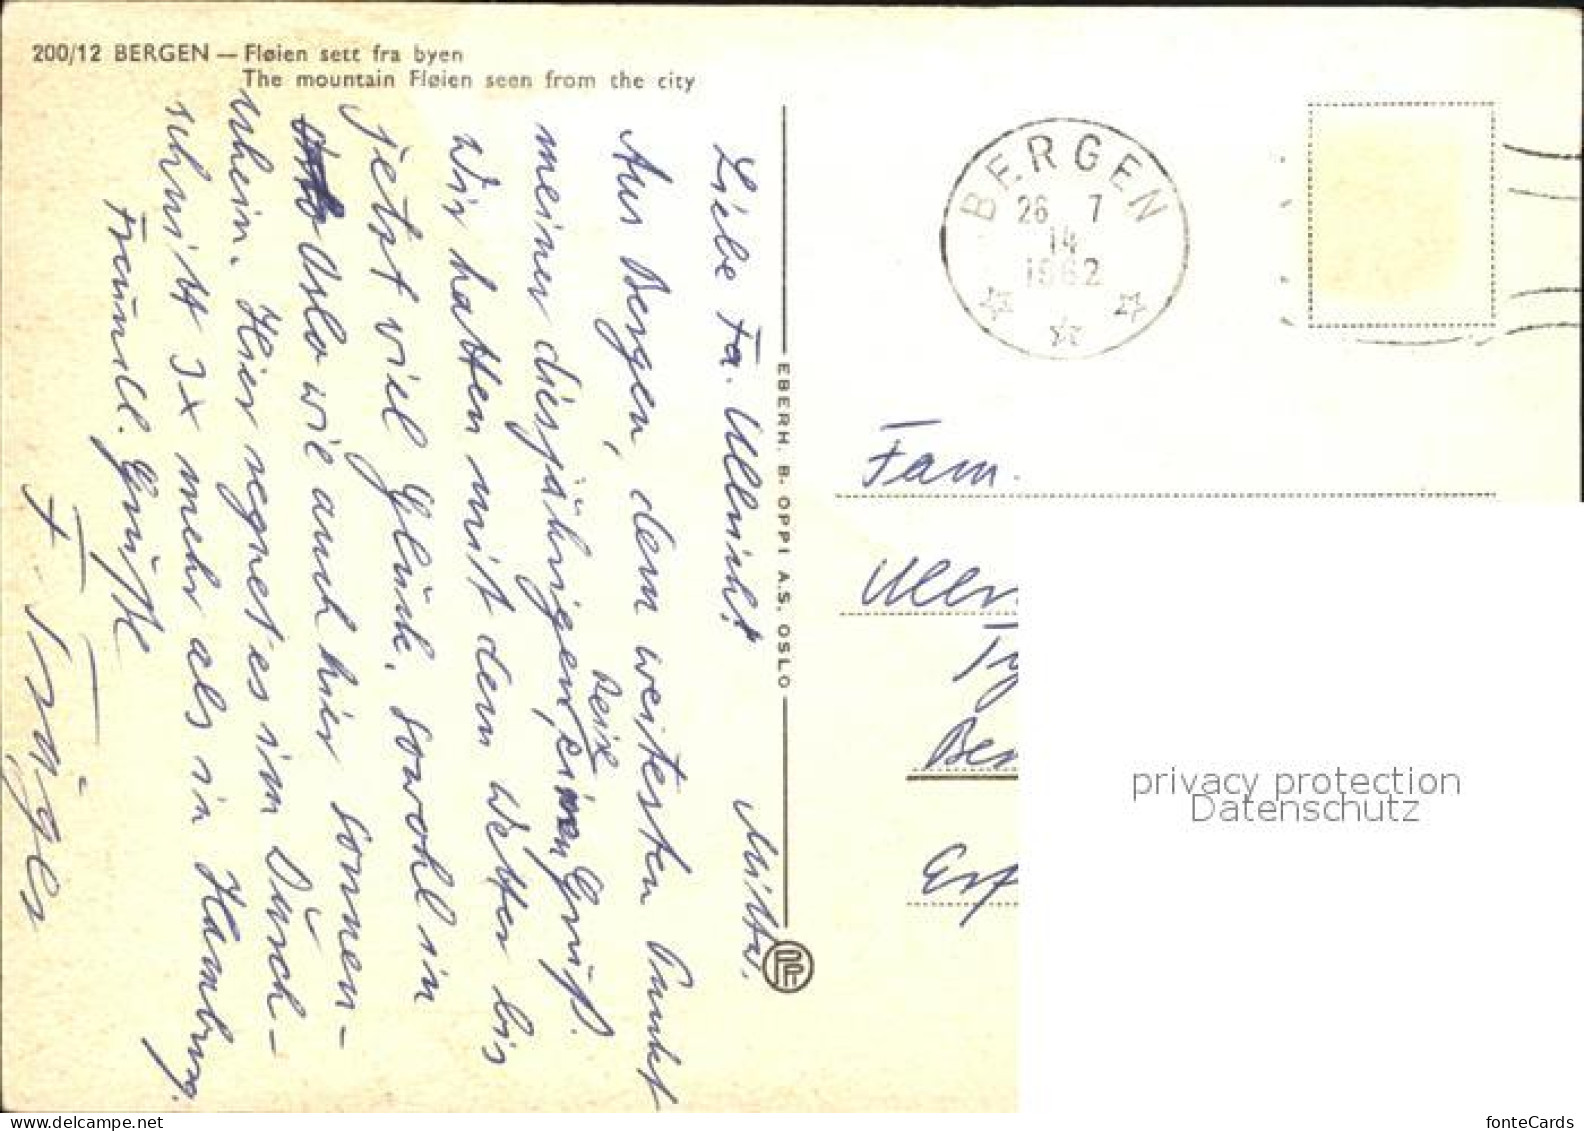 200/12 BERGEN — Fløien sett fra byen
The mountain Fløien seen from the city
Mittw.
Liebe Fa. Ullrich!
Aus Bergen, dem weitesten Punkt
meiner diesjährigen Reise, einen Gruß.
Wir hatten mit dem Wetter bis
jetzt viel Glück. Sowohl in
Oslo wie auch hier Sonnen-
schein. Hier regnet es im Durch-
schnitt 3x mehr als in Hamburg.
Freundl. Grüße
EBERH. B. OPPI A.S. OSLO
BERGEN
26 7
14
1962
Fam.
Ullr
Be
Erf
privacy protection
Datenschutz
www.delcampe.net
fonteCards